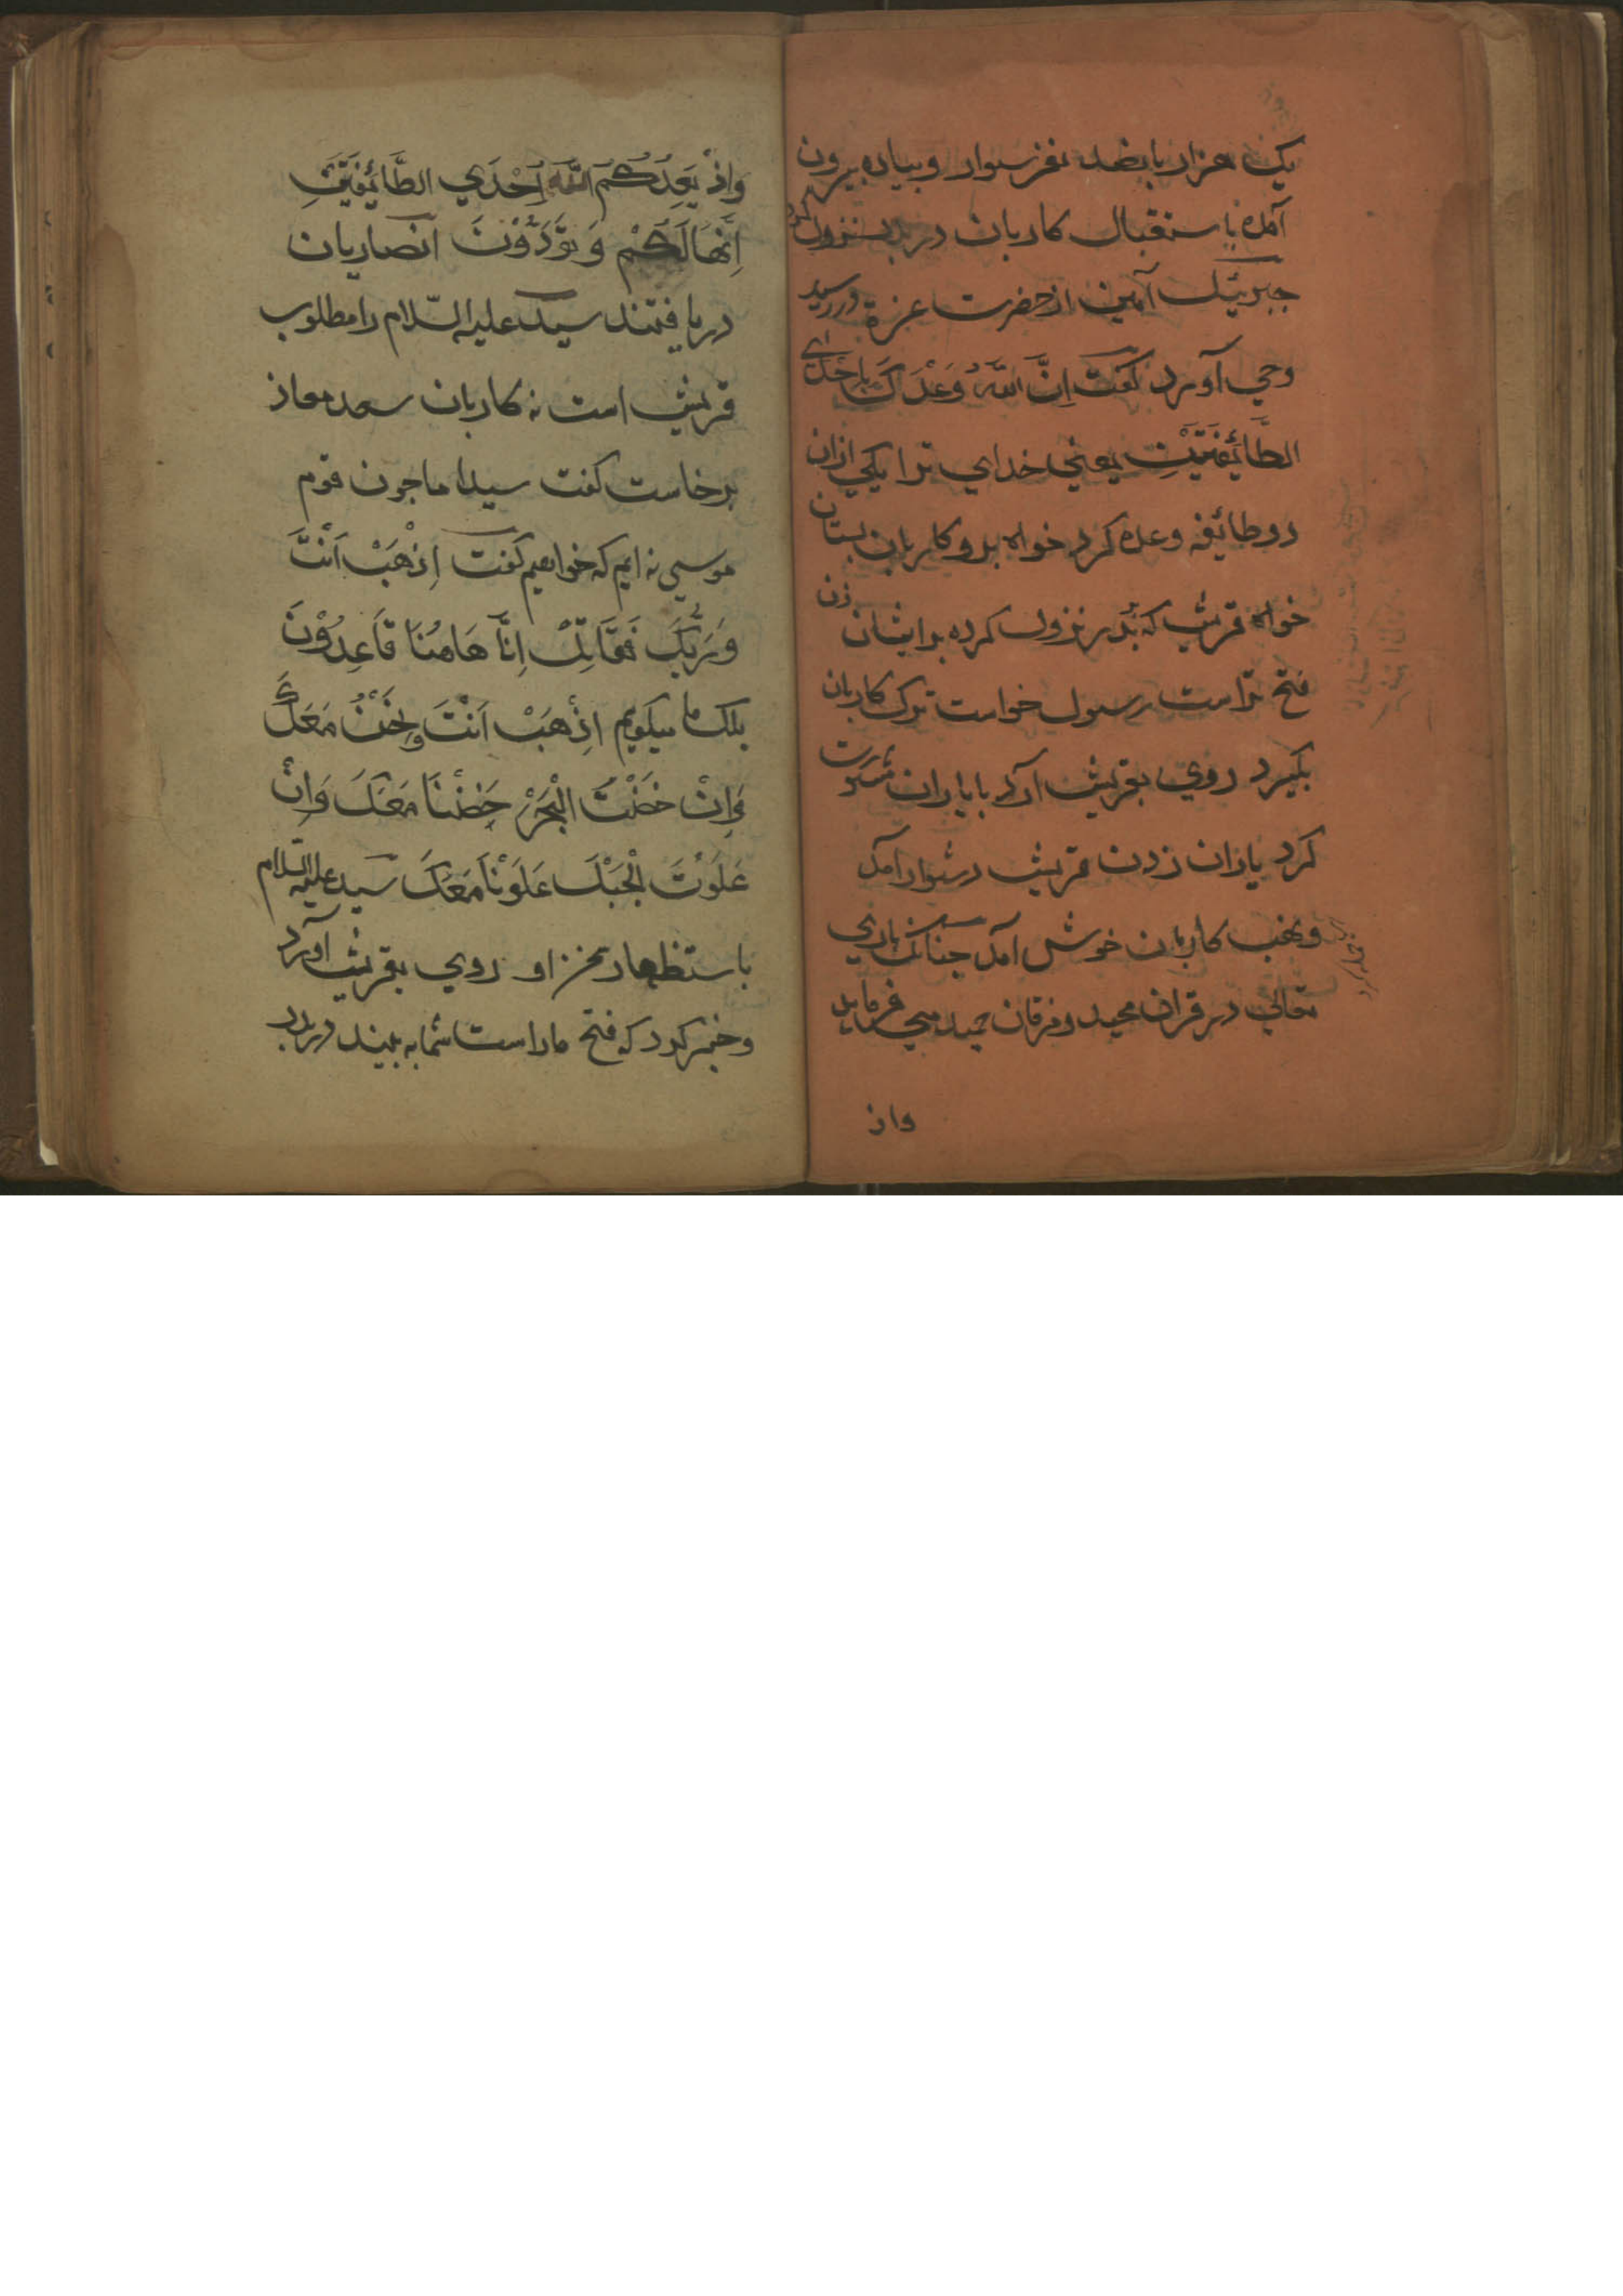 یک هزار پانصد نفر سوار و پیاده بیرون
آمده باستقبال کاربان در بدر نزول کرد
جبرئیل امین از حضرت عزة در رسید
وحی آورد گفت اِنَّ اللّٰهَ وَعَدَكَ بِاِحْدَي
الطَّائِفَتَيْنِ یعنی خدای ترا یکی ازان
دو طائفه وعده کرد خواه برو کاربان بستان
خواه قریش که بدر نزول کرده برایشان زن
فتح تراست رسول خواست ترک کاربان
بگیرد روی بقریش آرد با یاران مشورت
کرد یاران زدن قریش دشوار آمد
و نهب کاربان خوش آمد چنانک باری
تعالی در قران مجید و فرقان حمید می فرماید
واذ
وَاِذْ يَعِدُكُمُ اللّٰهُ اِحْدَي الطَّائِفَتَيْنِ
اَنَّهَا لَكُمْ وَ تَوَدُّوْنَ انصاریان
دریافتند سید علیه السّلام را مطلوب
قریش است نه کاربان سعد معاذ
برخاست گفت سیدا ما چون قوم
موسی نه ایم که خواهیم گفت اِذْهَبْ اَنْتَ
وَرَبُّكَ فَقَاتِلْ اِنَّا هَاهُنَا قَاعِدُوْنَ
بلک ما میگوییم اِذْهَبْ اَنْتَ وَنَحْنُ مَعَكَ
فَاِنْ خُضْتَ الْبَحْرَ خُضْنَا مَعَكَ وَاِنْ
عَلَوْتَ الْجَبَلَ عَلَوْنَا مَعَكَ سید علیه السّلام
باستظهار او روی بقریش آورد
و خبر کرد که فتح ماراست شما به بینید در بدر